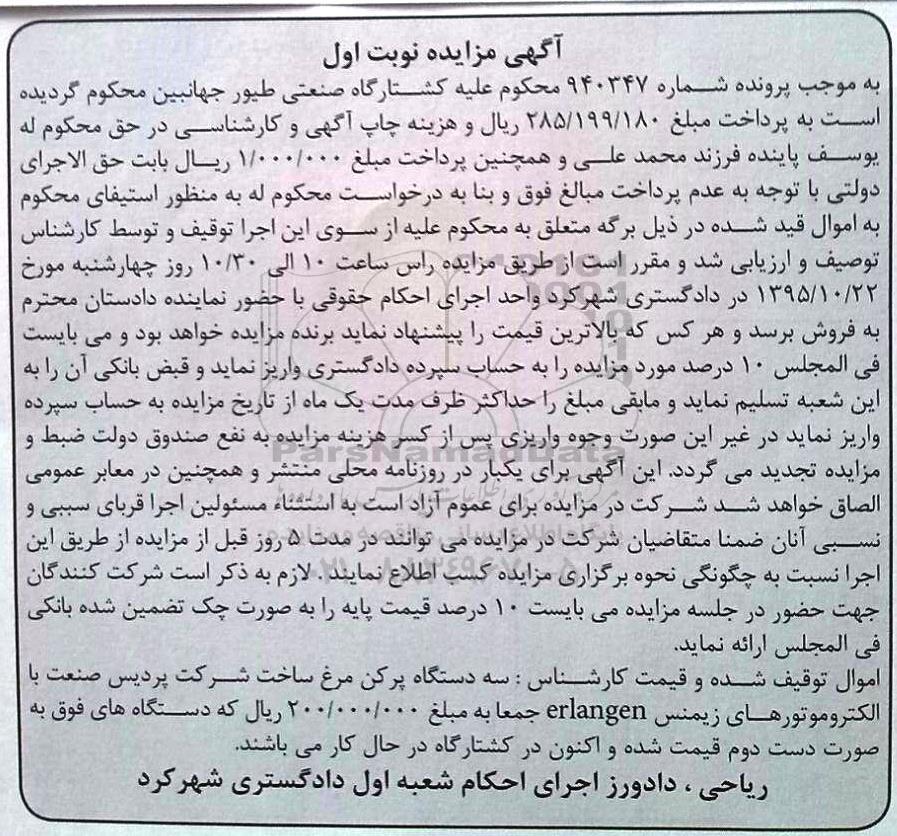 آگهی مزایده نوبت اول
به موجب پرونده شماره ۹۴۰۳۴۷ محکوم علیه کشتارگاه صنعتی طیور جهانبین محکوم گردیده
است به پرداخت مبلغ ۲۸۵/۱۹۹/۱۸۰ ریال و هزینه چاپ آگهی و کارشناسی در حق محکوم له
یوسف پاینده فرزند محمد علی و همچنین پرداخت مبلغ ۱/۰۰۰/۰۰۰ ریال بابت حق الاجرای
دولتی با توجه به عدم پرداخت مبالغ فوق و بنا به درخواست محکوم له به منظور استیفای محکوم
به اموال قید شده در ذیل برگه متعلق به محکوم علیه از سوی این اجرا توقیف و توسط کارشناس
توصیف و ارزیابی شد و مقرر است از طریق مزایده راس ساعت ۱۰ الی ۱۰/۳۰ روز چهارشنبه مورخ
۱۳۹۵/۱۰/۲۲ در دادگستری شهرکرد واحد اجرای احکام حقوقی با حضور نماینده دادستان محترم
به فروش برسد و هر کس که بالاترین قیمت را پیشنهاد نماید برنده مزایده خواهد بود و می بایست
فی المجلس ۱۰ درصد مورد مزایده را به حساب سپرده دادگستری واریز نماید و قبض بانکی آن را به
این شعبه تسلیم نماید و مابقی مبلغ را حداکثر ظرف مدت یک ماه از تاریخ مزایده به حساب سپرده
واریز نماید در غیر این صورت وجوه واریزی پس از کسر هزینه مزایده به نفع صندوق دولت ضبط و
مزایده تجدید می گردد. این آگهی برای یکبار در روزنامه محلی منتشر و همچنین در معابر عمومی
الصاق خواهد شد شرکت در مزایده برای عموم آزاد است به استثناء مسئولین اجرا قربای سببی و
نسبی آنان ضمنا متقاضیان شرکت در مزایده می توانند در مدت ۵ روز قبل از مزایده از طریق این
اجرا نسبت به چگونگی نحوه برگزاری مزایده کسب اطلاع نمایند. لازم به ذکر است شرکت کنندگان
جهت حضور در جلسه مزایده می بایست ۱۰ درصد قیمت پایه را به صورت چک تضمین شده بانکی
فی المجلس ارائه نماید.
اموال توقیف شده و قیمت کارشناس : سه دستگاه پرکن مرغ ساخت شرکت پردیس صنعت با
الکتروموتورهای زیمنس erlangen جمعا به مبلغ ۲۰۰/۰۰۰/۰۰۰ ریال که دستگاه های فوق به
صورت دست دوم قیمت شده و اکنون در کشتارگاه در حال کار می باشند.
ریاحی ، دادورز اجرای احکام شعبه اول دادگستری شهرکرد
ParsNamadData